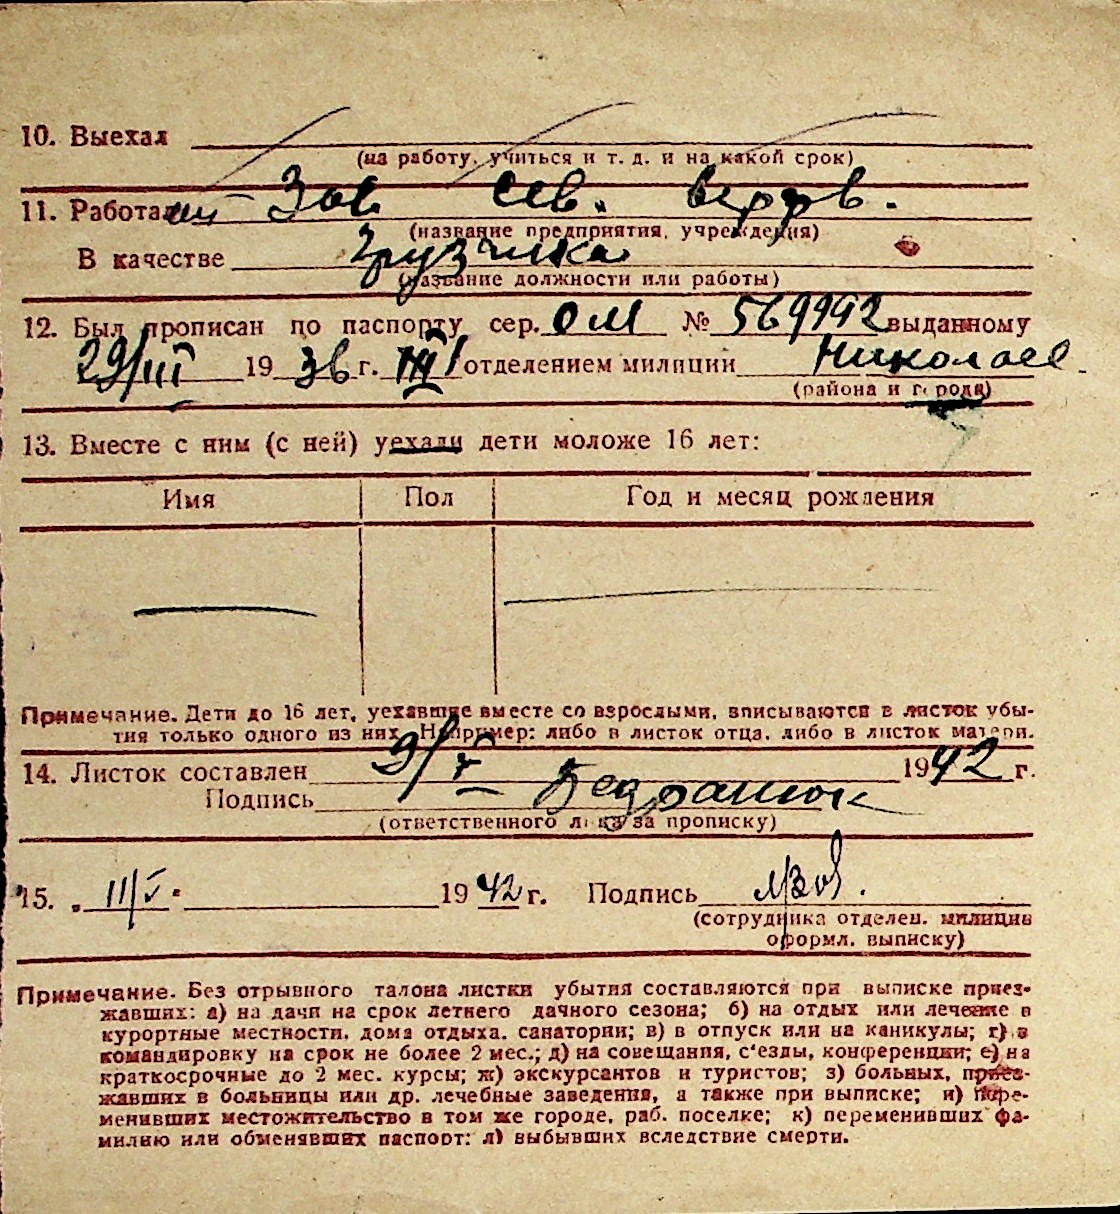 10. Выехал
(на работу, учиться и т. д. и на какой срок)
11. Работал Зав. Сев. верфь.
(название предприятия, учреждения)
В качестве Грузчика
(название должности или работы)
12. Был прописан по паспорту сер. ОМ № 569992 выданному
29/III 1936 г. III отделением милиции Николаев.
(района и города)
13. Вместе с ним (с ней) уехали дети моложе 16 лет:
Имя Пол Год и месяц рождения
Примечание. Дети до 16 лет, уехавшие вместе со взрослыми, вписываются в листок убы-
тия только одного из них. Например: либо в листок отца, либо в листок матери.
14. Листок составлен 9/V 1942 г.
Подпись
(ответственного лица за прописку)
15. „ 11/V " 1942 г. Подпись
(сотрудника отделен. милиции
оформл. выписку)
Примечание. Без отрывного талона листки убытия составляются при выписке приез-
жавших: а) на дачи на срок летнего дачного сезона; б) на отдых или лечение в
курортные местности, дома отдыха, санатории; в) в отпуск или на каникулы; г) в
командировку на срок не более 2 мес.; д) на совещания, с'езды, конференции; е) на
краткосрочные до 2 мес. курсы; ж) экскурсантов и туристов; з) больных, приез-
жавших в больницы или др. лечебные заведения, а также при выписке; и) пере-
менивших местожительство в том же городе, раб. поселке; к) переменивших фа-
милию или обменявших паспорт; л) выбывших вследствие смерти.